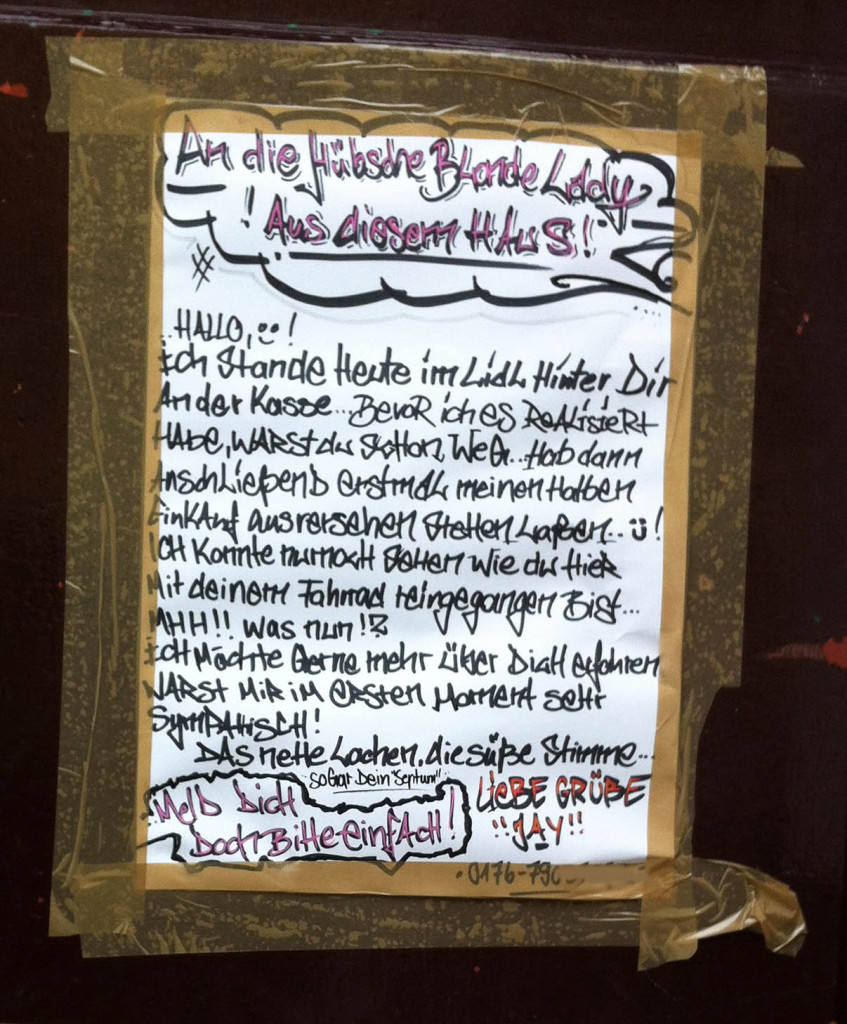 An die Hübsche Blonde Lady
! Aus diesem Haus!
#
..Hallo, !
Ich Stande Heute im Lidl Hinter Dir
An der Kasse... Bevor ich es Realisiert
Habe, warst du schon weg... Hab dann
Anschließend erstmal meinen Halben
Einkauf ausversehen stehen laßen.. ü!
Ich konnte nurnoch sehen wie du Hier
Mit deinem Fahrrad reingegangen Bist...
Mhh!! Was nun!?
Ich Möchte Gerne mehr über Dich erfahren
Warst Mir im ersten Moment sehr
Sympathisch!
Das nette Lachen, die süße Stimme...
sogar Dein "Septum"
Meld Dich
Doch Bitte einfach!
Liebe Grüße
"Jay"
0176-790